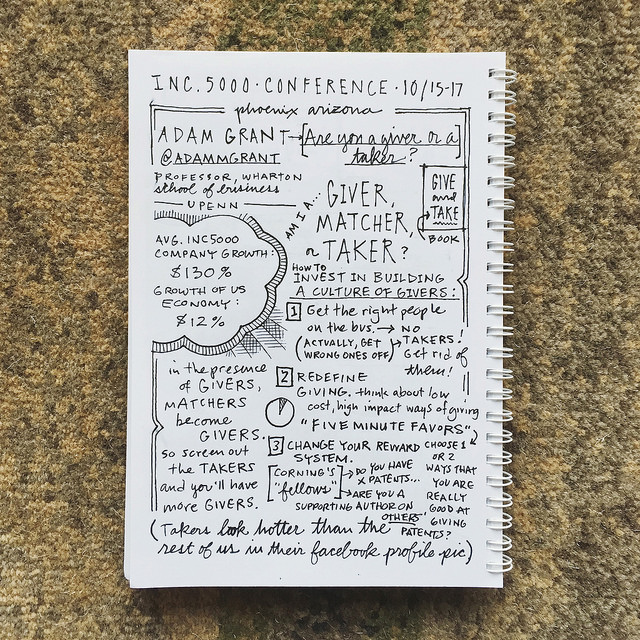 INC. 5000 · CONFERENCE · 10/15-17
phoenix arizona
ADAM GRANT → [Are you a giver or a
taker?]
@ADAMMGRANT
PROFESSOR, WHARTON
school of business
UPENN
AM I A...
GIVER,
MATCHER,
or TAKER?
GIVE
and
TAKE
BOOK
AVG. INC5000
COMPANY GROWTH:
$130%
GROWTH OF US
ECONOMY:
$12%
HOW TO
INVEST IN BUILDING
A CULTURE OF GIVERS:
1 Get the right people
on the bus. → NO
TAKERS!
(ACTUALLY, GET
WRONG ONES OFF)
Get rid of
them!
in the presence
of GIVERS,
MATCHERS
become
GIVERS.
so screen out
the TAKERS
and you'll have
more GIVERS.
2 REDEFINE
GIVING. think about low
cost, high impact ways of giving
"FIVE MINUTE FAVORS"
CHOOSE 1
OR 2
WAYS THAT
YOU ARE
REALLY
GOOD AT
GIVING
3 CHANGE YOUR REWARD
SYSTEM.
[CORNING'S
"fellows"]
→ DO YOU HAVE
X PATENTS...
→ ARE YOU A
SUPPORTING AUTHOR ON
OTHERS
PATENTS?
(Takers look hotter than the
rest of us in their facebook profile pic)